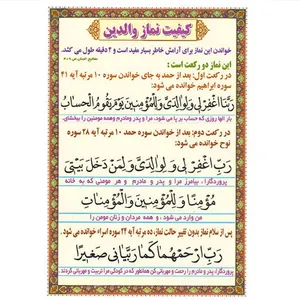 کیفیت نماز والدین
خواندن این نماز برای آرامش خاطر بسیار مفید است و ۲ دقیقه طول می کشد.
این نماز دو رکعت است :
در رکعت اول: بعد از حمد به جای خواندن سوره ۱۰ مرتبه آیه ۴۱
سوره ابراهیم خوانده می شود:
رَبَّنَا اغْفِرْ لِي وَلِوَالِدَيَّ وَلِلْمُؤْمِنِينَ يَوْمَ يَقُومُ الْحِسَابُ
بار الها روزی که حساب بر پا می شود، مرا و پدر ومادرم وهمه مومنین را ببخشای.
در رکعت دوم: بعد از حمد ۱۰ مرتبه آیه ۲۸ سوره
نوح خوانده می شود:
رَبِّ اغْفِرْ لِي وَلِوَالِدَيَّ وَلِمَنْ دَخَلَ بَيْتِيَ
پروردگارا، بیامرز مرا و پدر و مادرم و هر مومنی که به خانه
مُؤْمِنًا وَلِلْمُؤْمِنِينَ وَالْمُؤْمِنَاتِ
من وارد می شود، و همه مردان و زنان مومن را
پس از سلام نماز بدون تغییر حالت نماز، ده مرتبه آیه ۲۴ سوره اسراء خوانده می شود.
رَبِّ ارْحَمْهُمَا كَمَا رَبَّيَانِي صَغِيرًا
پروردگارا، پدر و مادرم را رحمت و مهربانی کن همانطور که در کودکی مرا تربیت و مهربانی کردند.